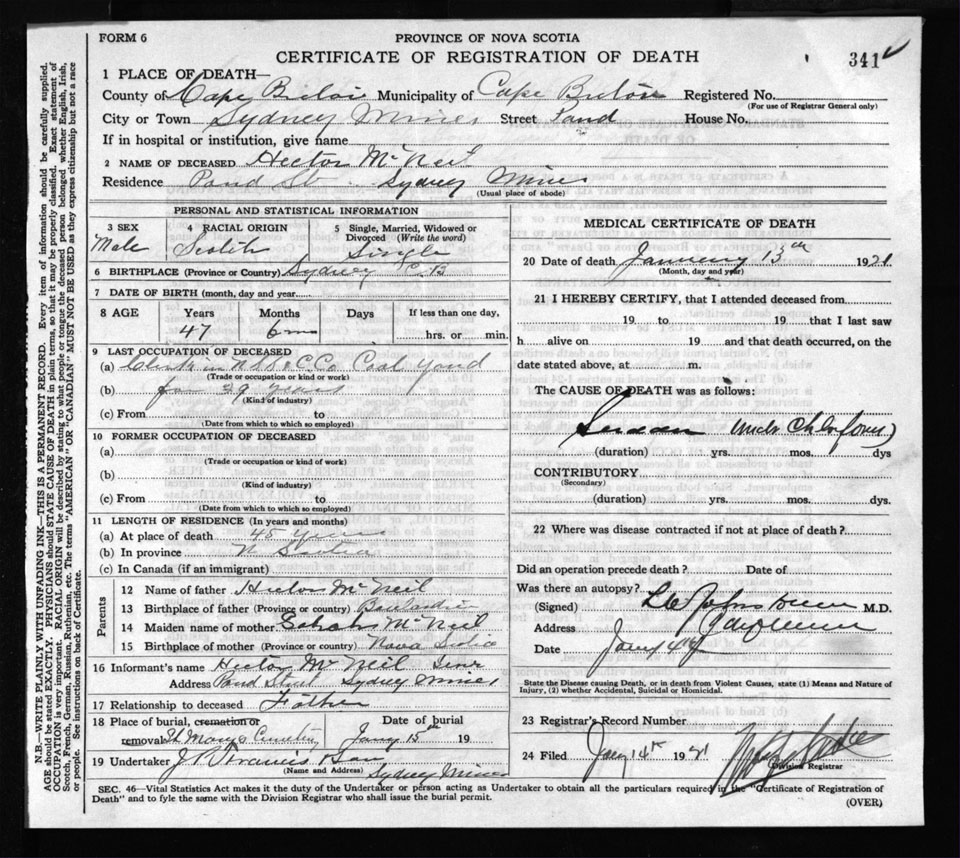 FORM 6
PROVINCE OF NOVA SCOTIA
CERTIFICATE OF REGISTRATION OF DEATH
341
1 PLACE OF DEATH—
County of Cape Breton Municipality of Cape Breton Registered No.
(For use of Registrar General only)
City or Town Sydney Mines Street Pond House No.
If in hospital or institution, give name
2 NAME OF DECEASED Hector McNeil
Residence Pond St Sydney Mines
(Usual place of abode)
PERSONAL AND STATISTICAL INFORMATION
3 SEX Male
4 RACIAL ORIGIN Scotch
5 Single, Married, Widowed or Divorced (Write the word) Single
6 BIRTHPLACE (Province or Country) Sydney C.B
7 DATE OF BIRTH (month, day and year
8 AGE Years Months Days If less than one day,
47 6 ms hrs. or min.
9 LAST OCCUPATION OF DECEASED
(a) Clerk in N S S & C Co Coal Yard
(Trade or occupation or kind or work)
(b) for 29 years
(Kind of industry)
(c) From to
(Date from which to which so employed)
10 FORMER OCCUPATION OF DECEASED
(a)
(Trade or occupation or kind or work)
(b)
(Kind of industry)
(c) From to
(Date from which to which so employed)
11 LENGTH OF RESIDENCE (In years and months)
(a) At place of death 45 years
(b) In province N Scotia
(c) In Canada (if an immigrant)
Parents
12 Name of father Hector McNeil
13 Birthplace of father (Province or country)
14 Maiden name of mother McNeil
15 Birthplace of mother (Province or country) Nova Scotia
16 Informant's name Hector McNeil Senr
Address Pond Street Sydney Mines
17 Relationship to deceased Father
18 Place of burial, cremation or removal St Marys Cemetery
Date of burial Jany 15th 19
19 Undertaker Sydney Mines
(Name and Address)
MEDICAL CERTIFICATE OF DEATH
20 Date of death January 13th 1921
(Month, day and year)
21 I HEREBY CERTIFY, that I attended deceased from
19 to 19 that I last saw
h alive on 19 and that death occurred, on the
date stated above, at m.
The CAUSE OF DEATH was as follows:
Sudden under Chloroform
(duration) yrs. mos. dys
CONTRIBUTORY
(Secondary)
(duration) yrs. mos. dys.
22 Where was disease contracted if not at place of death?
Did an operation precede death? Date of
Was there an autopsy?
(Signed) M.D.
Address
Date Jany 14
State the Disease causing Death, or in death from Violent Causes, state (1) Means and Nature of
Injury, (2) whether Accidental, Suicidal or Homicidal.
23 Registrar's Record Number
24 Filed Jany 14th 1921
Division Registrar
SEC. 46—Vital Statistics Act makes it the duty of the Undertaker or person acting as Undertaker to obtain all the particulars required in the "Certificate of Registration of
Death" and to fyle the same with the Division Registrar who shall issue the burial permit.
(OVER)
N.B.—WRITE PLAINLY WITH UNFADING INK—THIS IS A PERMANENT RECORD. Every item of information should be carefully supplied.
AGE should be stated EXACTLY. PHYSICIANS should STATE CAUSE OF DEATH in plain terms, so that it may be properly classified. Exact statement of
OCCUPATION is very important. RACIAL ORIGIN will be described by stating to what people or tongue the deceased person belonged whether English, Irish,
Scotch, French, German, Russian, Ruthenian, etc. The terms "AMERICAN" OR "CANADIAN" MUST NOT BE USED as they express citizenship but not a race
or people. See instructions on back of Certificate.